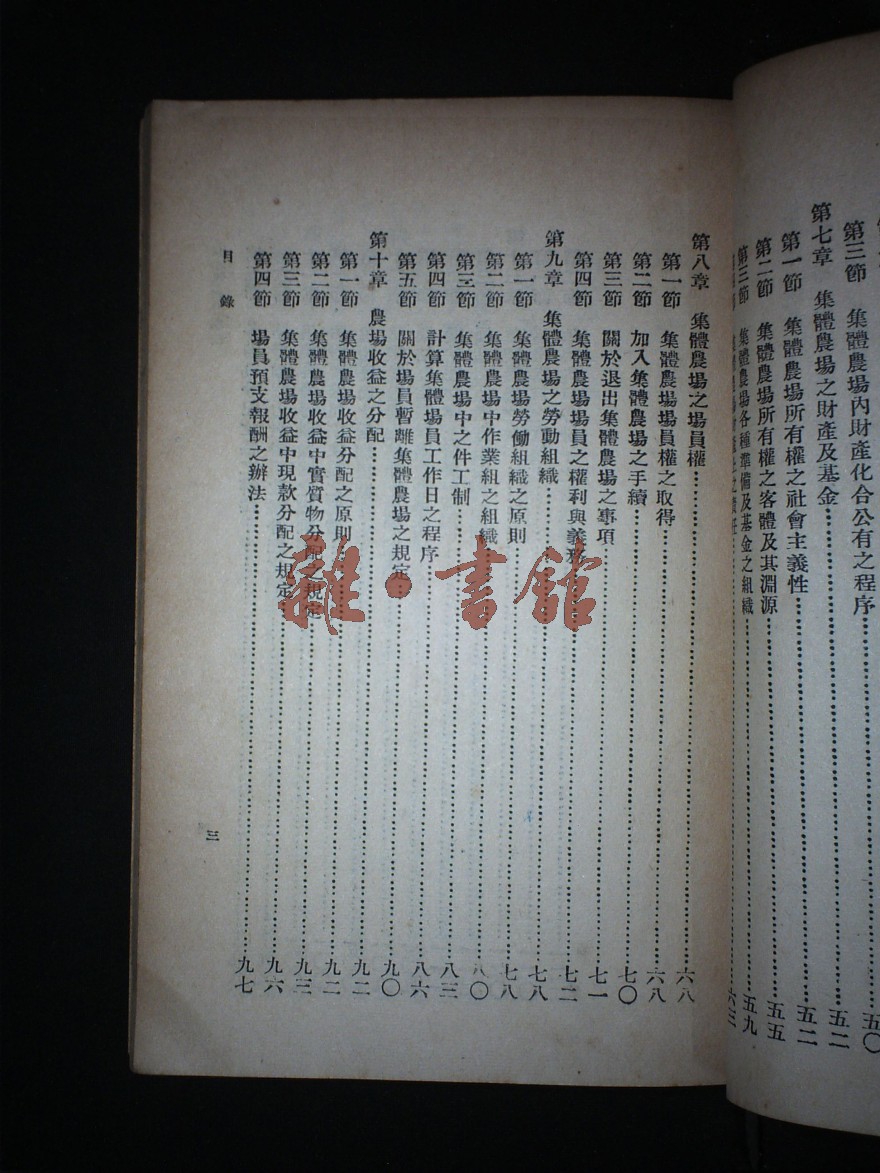 第三節 集體農場內財產化合公有之程序……五〇
第七章 集體農場之財產及基金……五二
第一節 集體農場所有權之社會主義性……五二
第二節 集體農場所有權之客體及其淵源……五五
第三節 集體農場各種準備及基金之組織……五九
六三
第八章 集體農場之場員權……六八
第一節 集體農場場員權之取得……六八
第二節 加入集體農場之手續……七〇
第三節 關於退出集體農場之事項……七一
第四節 集體農場場員之權利與義務……七二
第九章 集體農場之勞動組織……七八
第一節 集體農場勞働組織之原則……七八
第二節 集體農場中作業組之組織……八〇
第三節 集體農場中之件工制……八三
第四節 計算集體場員工作日之程序……八六
第五節 關於場員暫離集體農場之規定……九〇
第十章 農場收益之分配……九二
第一節 集體農場收益分配之原則……九二
第二節 集體農場收益中實質物分配之規定……九三
第三節 集體農場收益中現款分配之規定……九六
第四節 場員預支報酬之辦法……九七
目錄
三
雜·書館